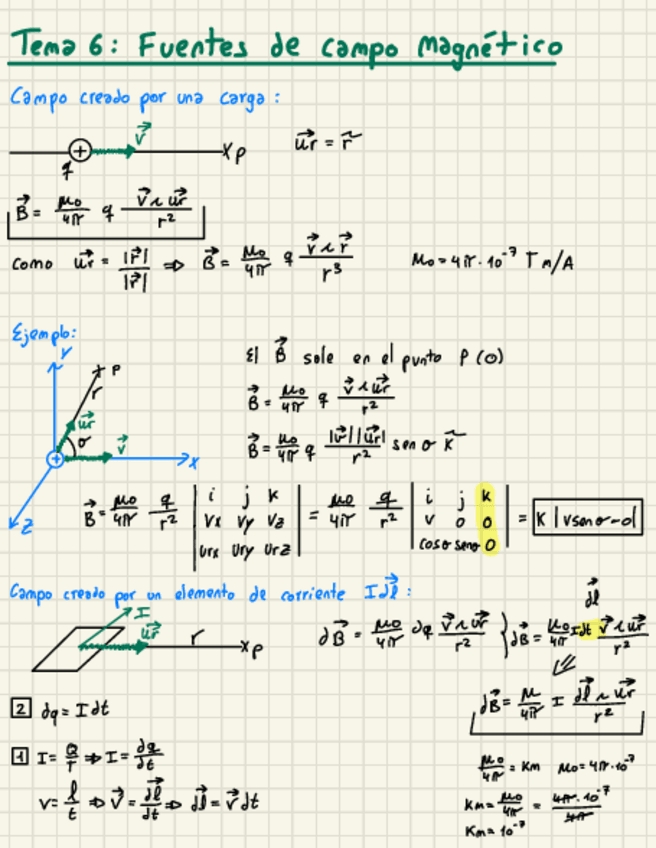 Tema 6: Fuentes de campo magnético
Campo creado por una carga:
v⃗
q
x P
u⃗r = r̃
B⃗ = μ₀/4π q (v⃗ ∧ u⃗r)/r²
Como u⃗r = |r⃗|/|r⃗| ⇒ B⃗ = μ₀/4π q (v⃗ ∧ r⃗)/r³
μ₀ = 4π·10⁻⁷ T m/A
Ejemplo:
y
P
r
u⃗r
σ
v⃗
x
z
El B⃗ sale en el punto P (⊙)
B⃗ = μ₀/4π q (v⃗ ∧ u⃗r)/r²
B⃗ = μ₀/4π q (|v⃗||u⃗r|)/r² sen σ k⃗
B⃗ = μ₀/4π q/r² | i j k ; vx vy vz ; urx ury urz | = μ₀/4π q/r² | i j k ; v 0 0 ; cosσ senσ 0 | = K |v senσ - 0|
Campo creado por un elemento de corriente I dl⃗:
I
u⃗r
r
x P
dB⃗ = μ₀/4π dq (v⃗ ∧ u⃗r)/r² } dB⃗ = μ₀/4π I dt (v⃗ ∧ u⃗r)/r²
dl⃗
dB⃗ = μ/4π I (dl⃗ ∧ u⃗r)/r²
2 dq = I dt
1 I = Q/T ⇒ I = dq/dt
v = l/t ⇒ v⃗ = dl⃗/dt ⇒ dl⃗ = v⃗ dt
μ₀/4π = Km μ₀ = 4π·10⁻⁷
Km = μ₀/4π = 4π·10⁻⁷/4π
Km = 10⁻⁷